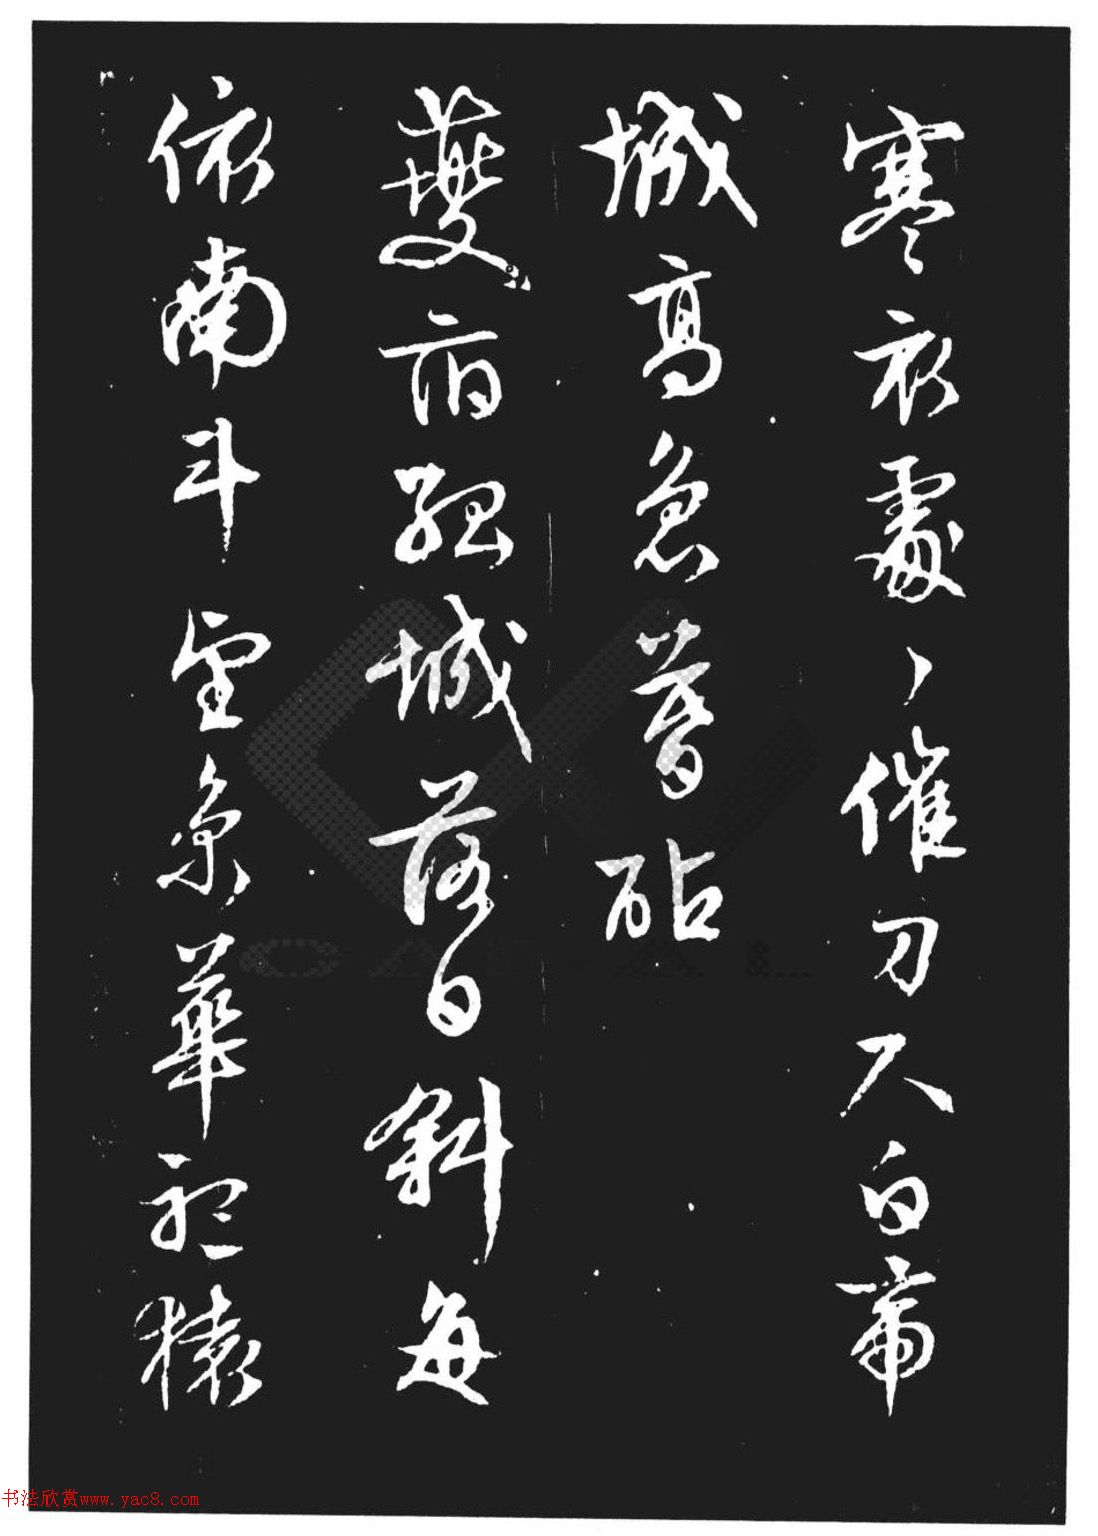 寒衣處〻催刀尺白帝
城高急暮砧
夔府孤城落日斜每
依南斗望京華聽猿
书法欣赏www.yac8.com